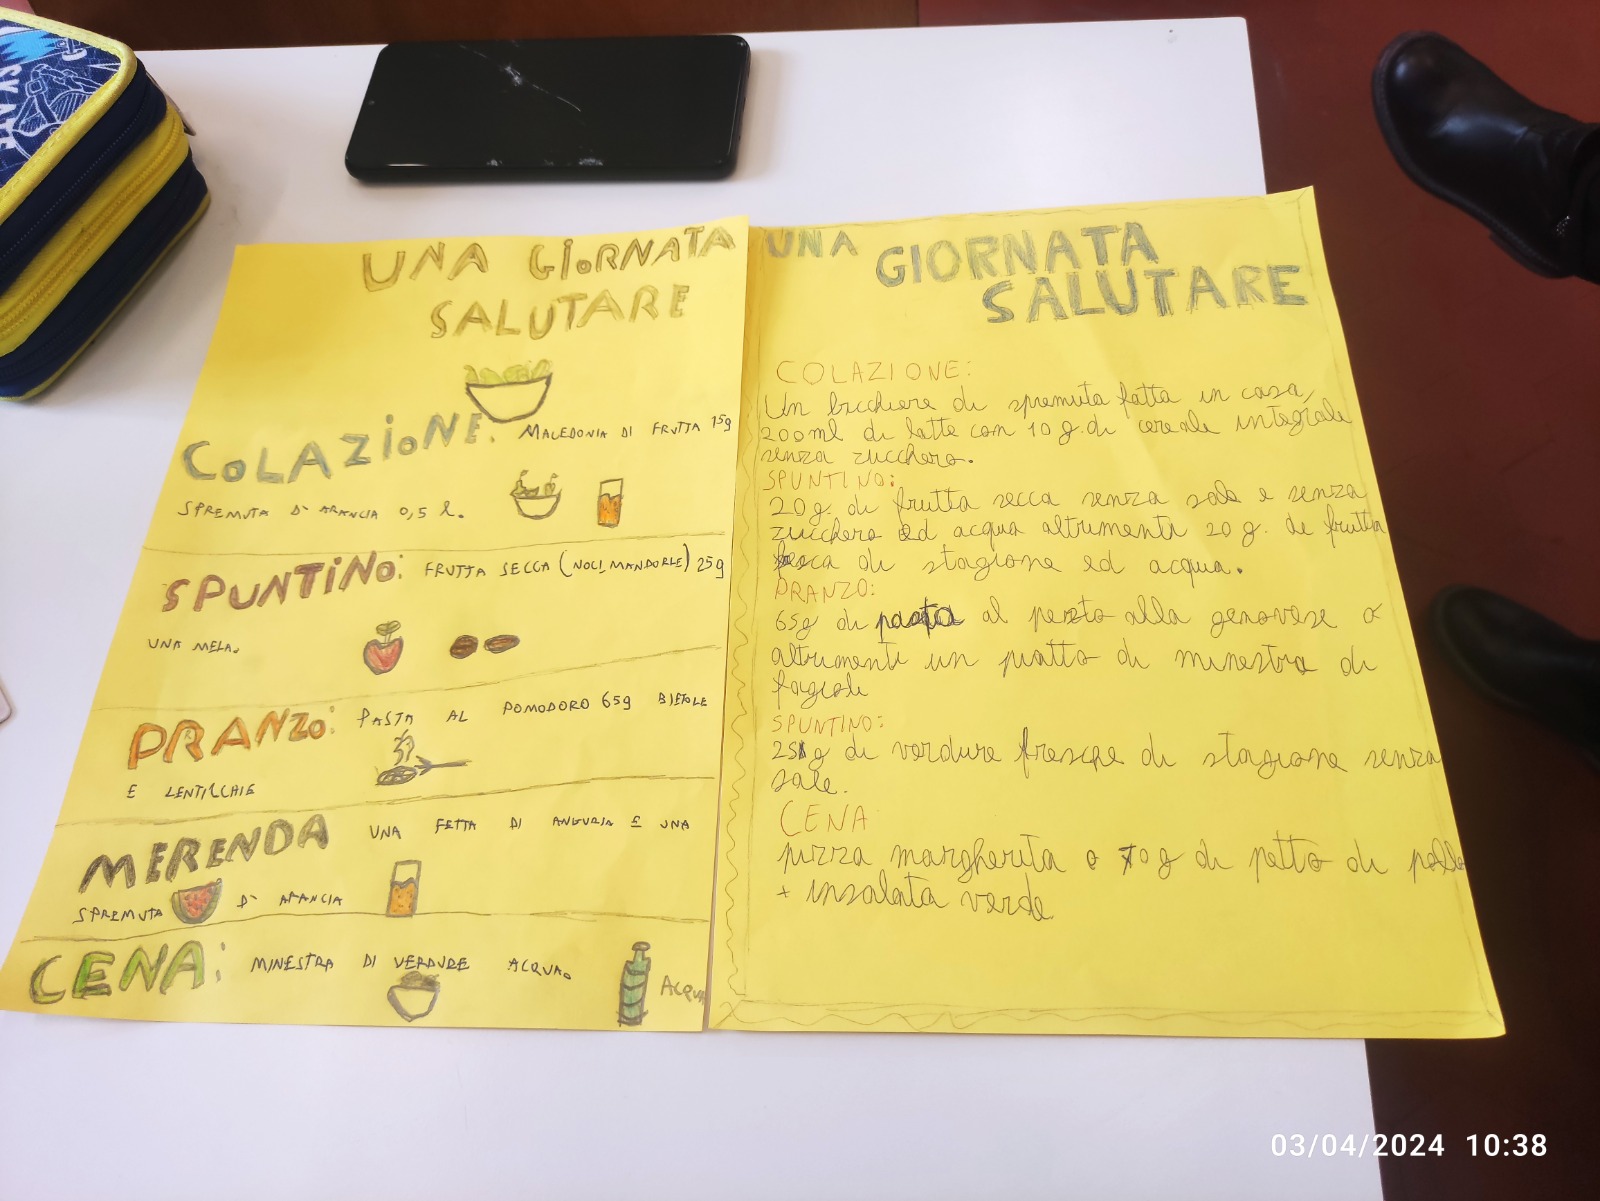 UNA GIORNATA
SALUTARE
COLAZIONE: MACEDONIA DI FRUTTA 15g
SPREMUTA D' ARANCIA 0,5 l.
SPUNTINO: FRUTTA SECCA (NOCI, MANDORLE) 25g
UNA MELA.
PRANZO: PASTA AL POMODORO 65g BIETOLE
E LENTICCHIE
MERENDA UNA FETTA DI ANGURIA E UNA
SPREMUTA D' ARANCIA
CENA: MINESTRA DI VERDURE ACQUA.
ACQUA
UNA GIORNATA
SALUTARE
COLAZIONE:
Un bicchiere di spremuta fatta in casa,
200ml di latte con 10 g. di cereale integrale
senza zucchero.
SPUNTINO:
20g. di frutta secca senza sale e senza
zucchero ed acqua altrimenti 20 g. di frutta
fresca di stagione ed acqua.
PRANZO:
65g di pasta al pesto alla genovese o
altrimenti un piatto di minestra di
fagioli
SPUNTINO:
25g di verdure fresche di stagione senza
sale.
CENA
pizza margherita o 70g di petto di pollo
+ insalata verde
03/04/2024 10:38